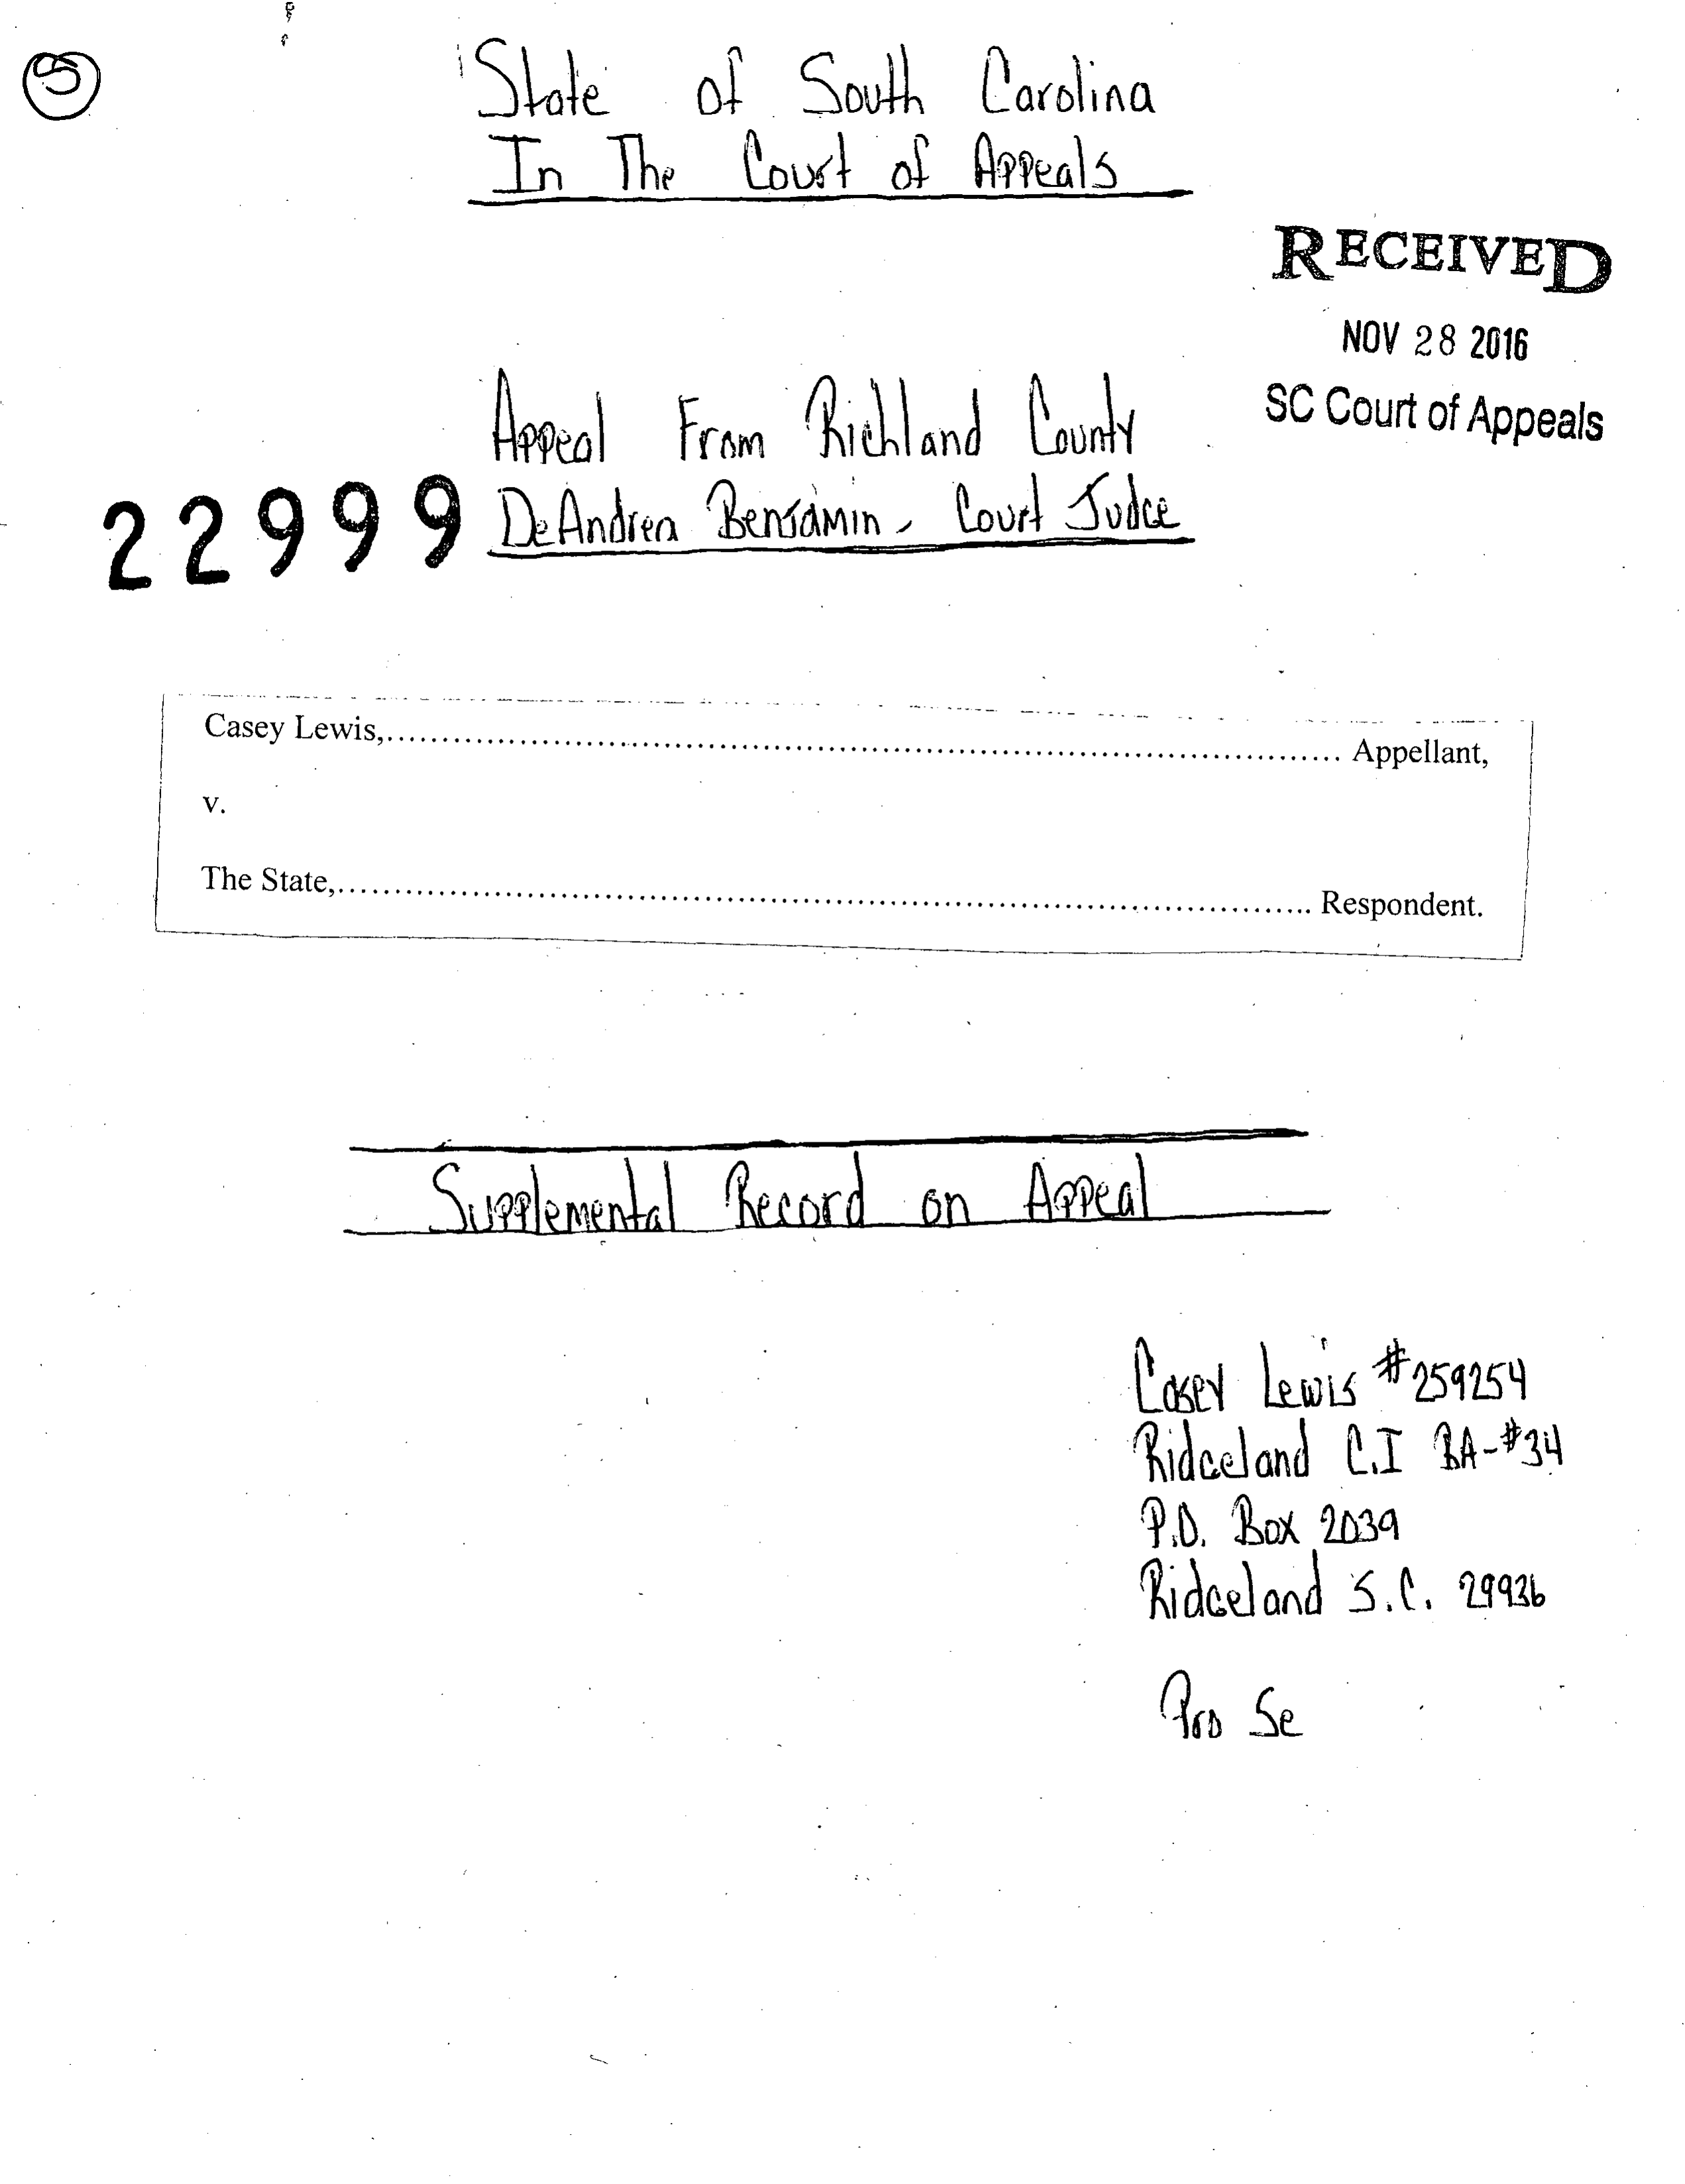 S
State of South Carolina
In The Court of Appeals
RECEIVED
NOV 28 2016
SC Court of Appeals
Appeal From Richland County
22999
DeAndrea Benjamin, Court Judge
Casey Lewis,.......... Appellant,
v.
The State,.......... Respondent.
Supplemental Record on Appeal
Casey Lewis #259254
Ridgeland C.I BA-#34
P.O. Box 2039
Ridgeland S.C. 29936
Pro Se